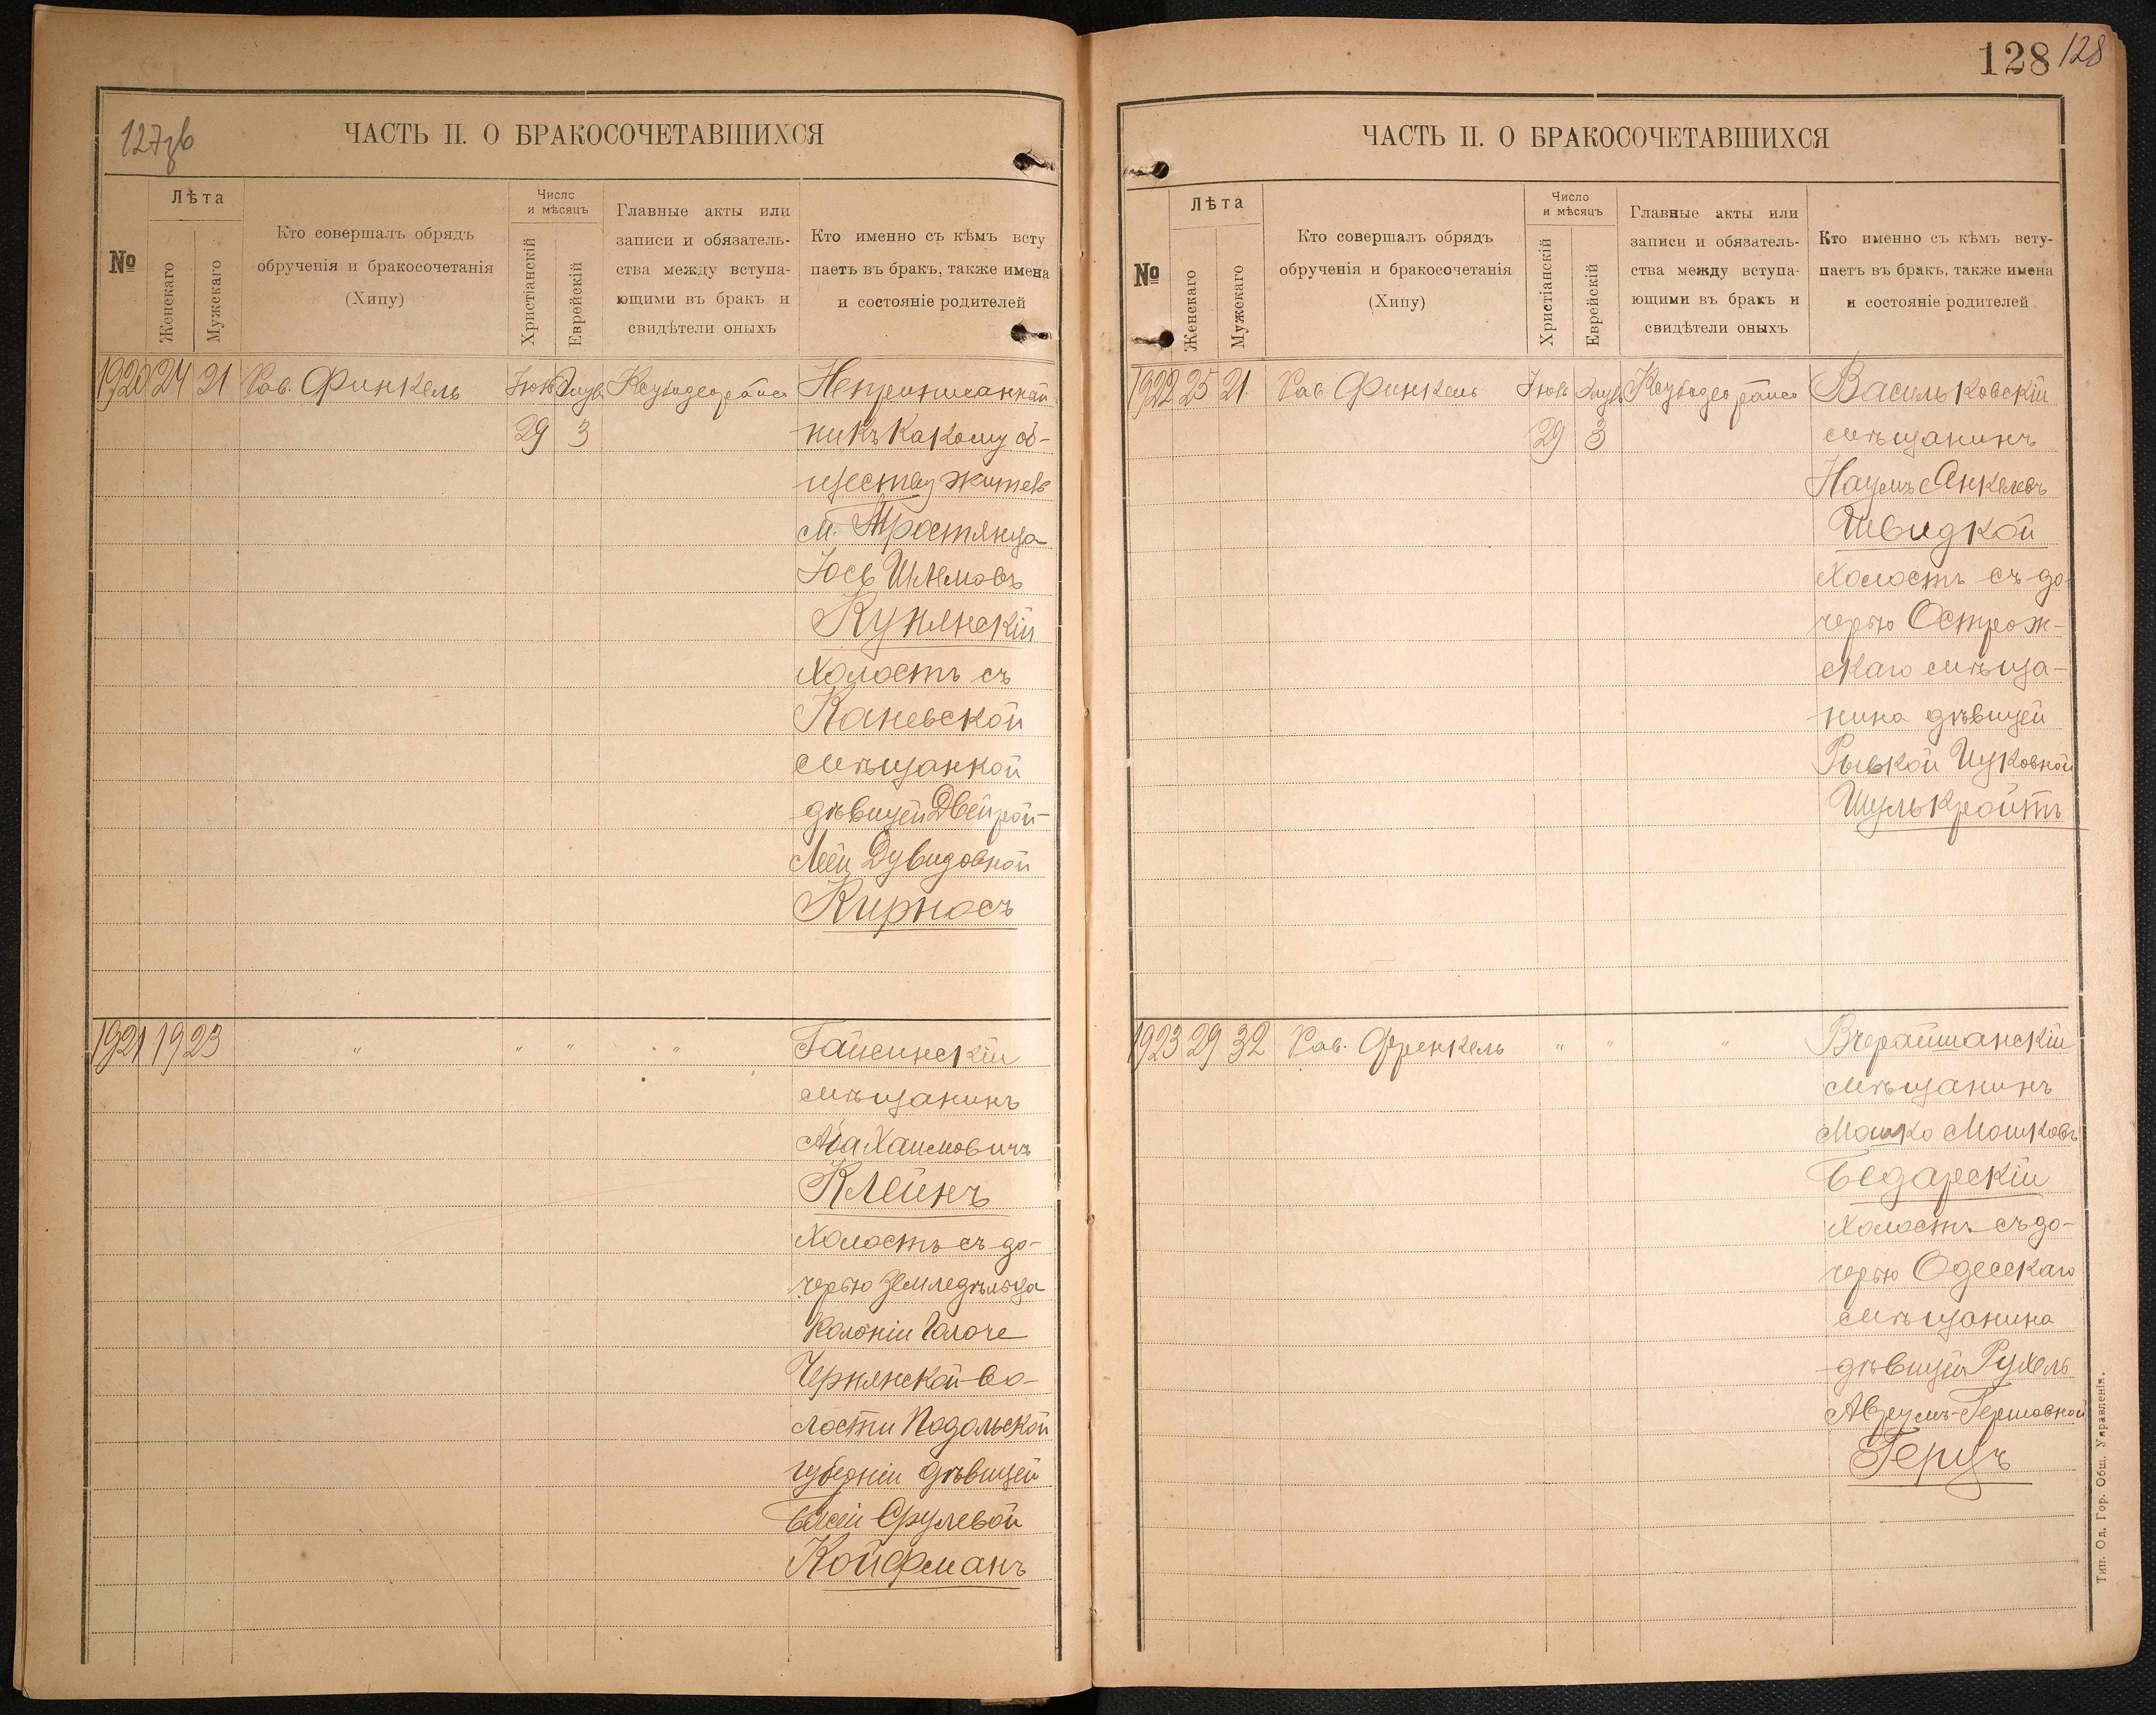 127зв
ЧАСТЬ II. О БРАКОСОЧЕТАВШИХСЯ
№
Лѣта
Женскаго
Мужскаго
Кто совершалъ обрядъ
обрученія и бракосочетанія
(Хипу)
Число
и мѣсяцъ
Христіанскій
Еврейскій
Главные акты или
записи и обязатель-
ства между вступа-
ющими въ бракъ и
свидѣтели оныхъ
Кто именно съ кѣмъ всту
паетъ въ бракъ, также имена
и состояніе родителей
1920 24 21 Рав. Финкель
29 3
Неприписанный
ник къ какому об-
ществу житель
м. Тростянца
Іось Шлемовъ
Купянскій
холостъ съ
Каневской
мѣщанкой
дѣвицей Двейрой-
Леей Дувидовной
Кирносъ
1921 19 23 " " " "
Гайсинскій
мѣщанинъ
Хаимовичъ
Клейнъ
холостъ съ до-
черью земледѣльца
колоніи
Чернянской во-
лости Подольской
губерніи дѣвицей
Срулевой
Койфманъ
128 128
ЧАСТЬ II. О БРАКОСОЧЕТАВШИХСЯ
№
Лѣта
Женскаго
Мужскаго
Кто совершалъ обрядъ
обрученія и бракосочетанія
(Хипу)
Число
и мѣсяцъ
Христіанскій
Еврейскій
Главные акты или
записи и обязатель-
ства между вступа-
ющими въ бракъ и
свидѣтели оныхъ
Кто именно съ кѣмъ всту-
паетъ въ бракъ, также имена
и состояніе родителей
1922 25 21 Рав. Финкель
29 3
Васильковскій
мѣщанинъ
Наумъ Янкелевъ
Швидкой
холостъ съ до-
черью Острож-
скаго мѣща-
нина дѣвицей
Рывкой Ицковной
Шулькройтъ
1923 29 32 Рав. Френкель " " "
Вчерайшанскій
мѣщанинъ
Мошко Мошковъ
Бедарскій
холостъ съ до-
черью Одесскаго
мѣщанина
дѣвицей Рухель
Аврумъ-Гершовной
Герцъ
Тип. Од. Гор. Общ. Управленія.